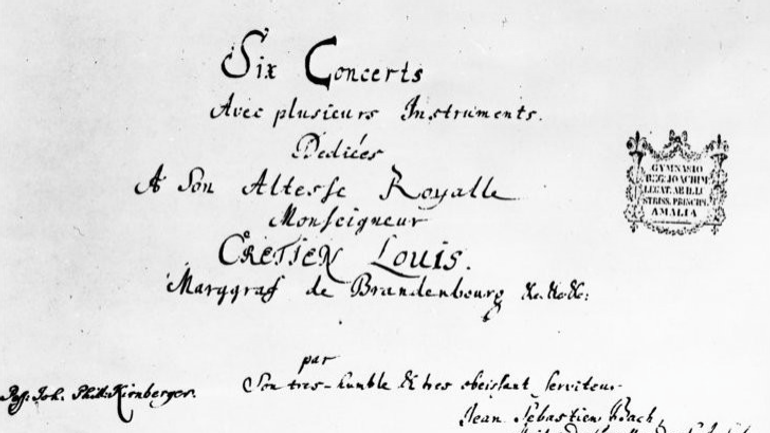 Six Concerts
Avec plusieurs Instruments.
Dediées
A Son Altesse Royalle
Monseigneur
CRETIEN LOUIS.
Marggraf de Brandenbourg &c. &c. &c:
par
Son tres-humble & tres obeissant serviteur
Jean Sebastien Bach
Poss: Joh. Phil. Kirnberger.
GYMNASIO
REG. JOACHIM
LEGAT. AB ILLU
STRISS. PRINCIPE
AMALIA